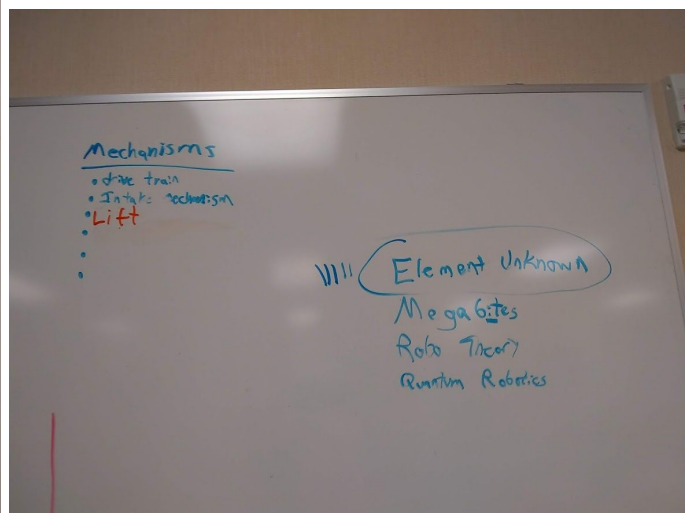 Mechanisms
• drive train
• Intake mechanism
• Lift
•
•
•
Element Unknown
Megabites
Robo Theory
Quantum Robotics